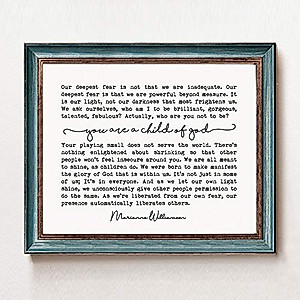 Our deepest fear is not that we are inadequate. Our
deepest fear is that we are powerful beyond measure. It
is our light, not our darkness that most frightens us.
We ask ourselves, who am I to be brilliant, gorgeous,
talented, fabulous? Actually, who are you not to be?
you are a child of god
Your playing small does not serve the world. There's
nothing enlightened about shrinking so that other
people won't feel insecure around you. We are all meant
to shine, as children do. We were born to make manifest
the glory of God that is within us. It's not just in some
of us; It's in everyone. And as we let our own light
shine, we unconsciously give other people permission to
do the same. As we're liberated from our own fear, our
presence automatically liberates others.
Marianne Williamson